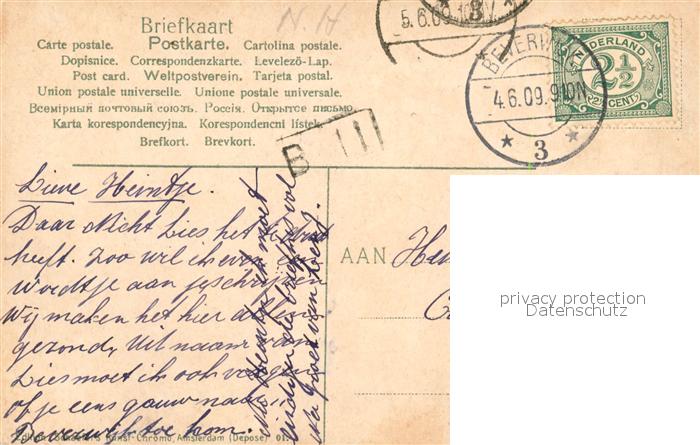 N. H
Briefkaart
Carte postale. Postkarte. Cartolina postale.
Dopisnice. Correspondenzkarte. Levelező-Lap.
Post card. Weltpostverein. Tarjeta postal.
Union postale universelle. Unione postale universale.
Всемірный почтовый союзъ. Россія. Открытое письмо.
Karta korespondencyjna. Korespondencni lístek.
Brefkort. Brevkort.
5.6.09
3
4.6.09.9-10N
3
NEDERLAND
2½
2½ CENT
B III
Lieve Heintje.
Daar Nicht Lies het
heeft. Zoo wil ik even een
woordtje aan je schrijven
Wij maken het hier allen
gezond, Uit naam van
Lies moet ik ook vragen
of je eens gauw naar
Beverwijk toe kom.
AAN
privacy protection
Datenschutz
Kunst-Chromo, Amsterdam (Depose) 01.